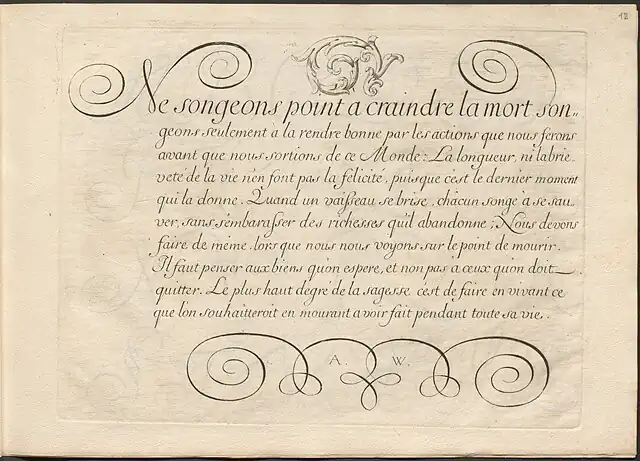 12
Ne songeons point a craindre la mort son„
geons seulement à la rendre bonne par les actions que nous ferons
avant que nous sortions de ce Monde: La longueur, ni la brie„
veté de la vie n'en font pas la félicité, puisque c'est le dernier moment
qui la donne. Quand un vaisseau se brise, chacun songe a se sau„
ver, sans s'embarasser des richesses qu'il abandonne; Nous devons
faire de même, lors que nous nous voyons sur le point de mourir.
Il faut penser aux biens qu'on espere, et non pas a ceux qu'on doit
quitter. Le plus haut degré de la sagesse c'est de faire en vivant ce
que l'on souhaitteroit en mourant avoir fait pendant toute sa vie..
A. W.